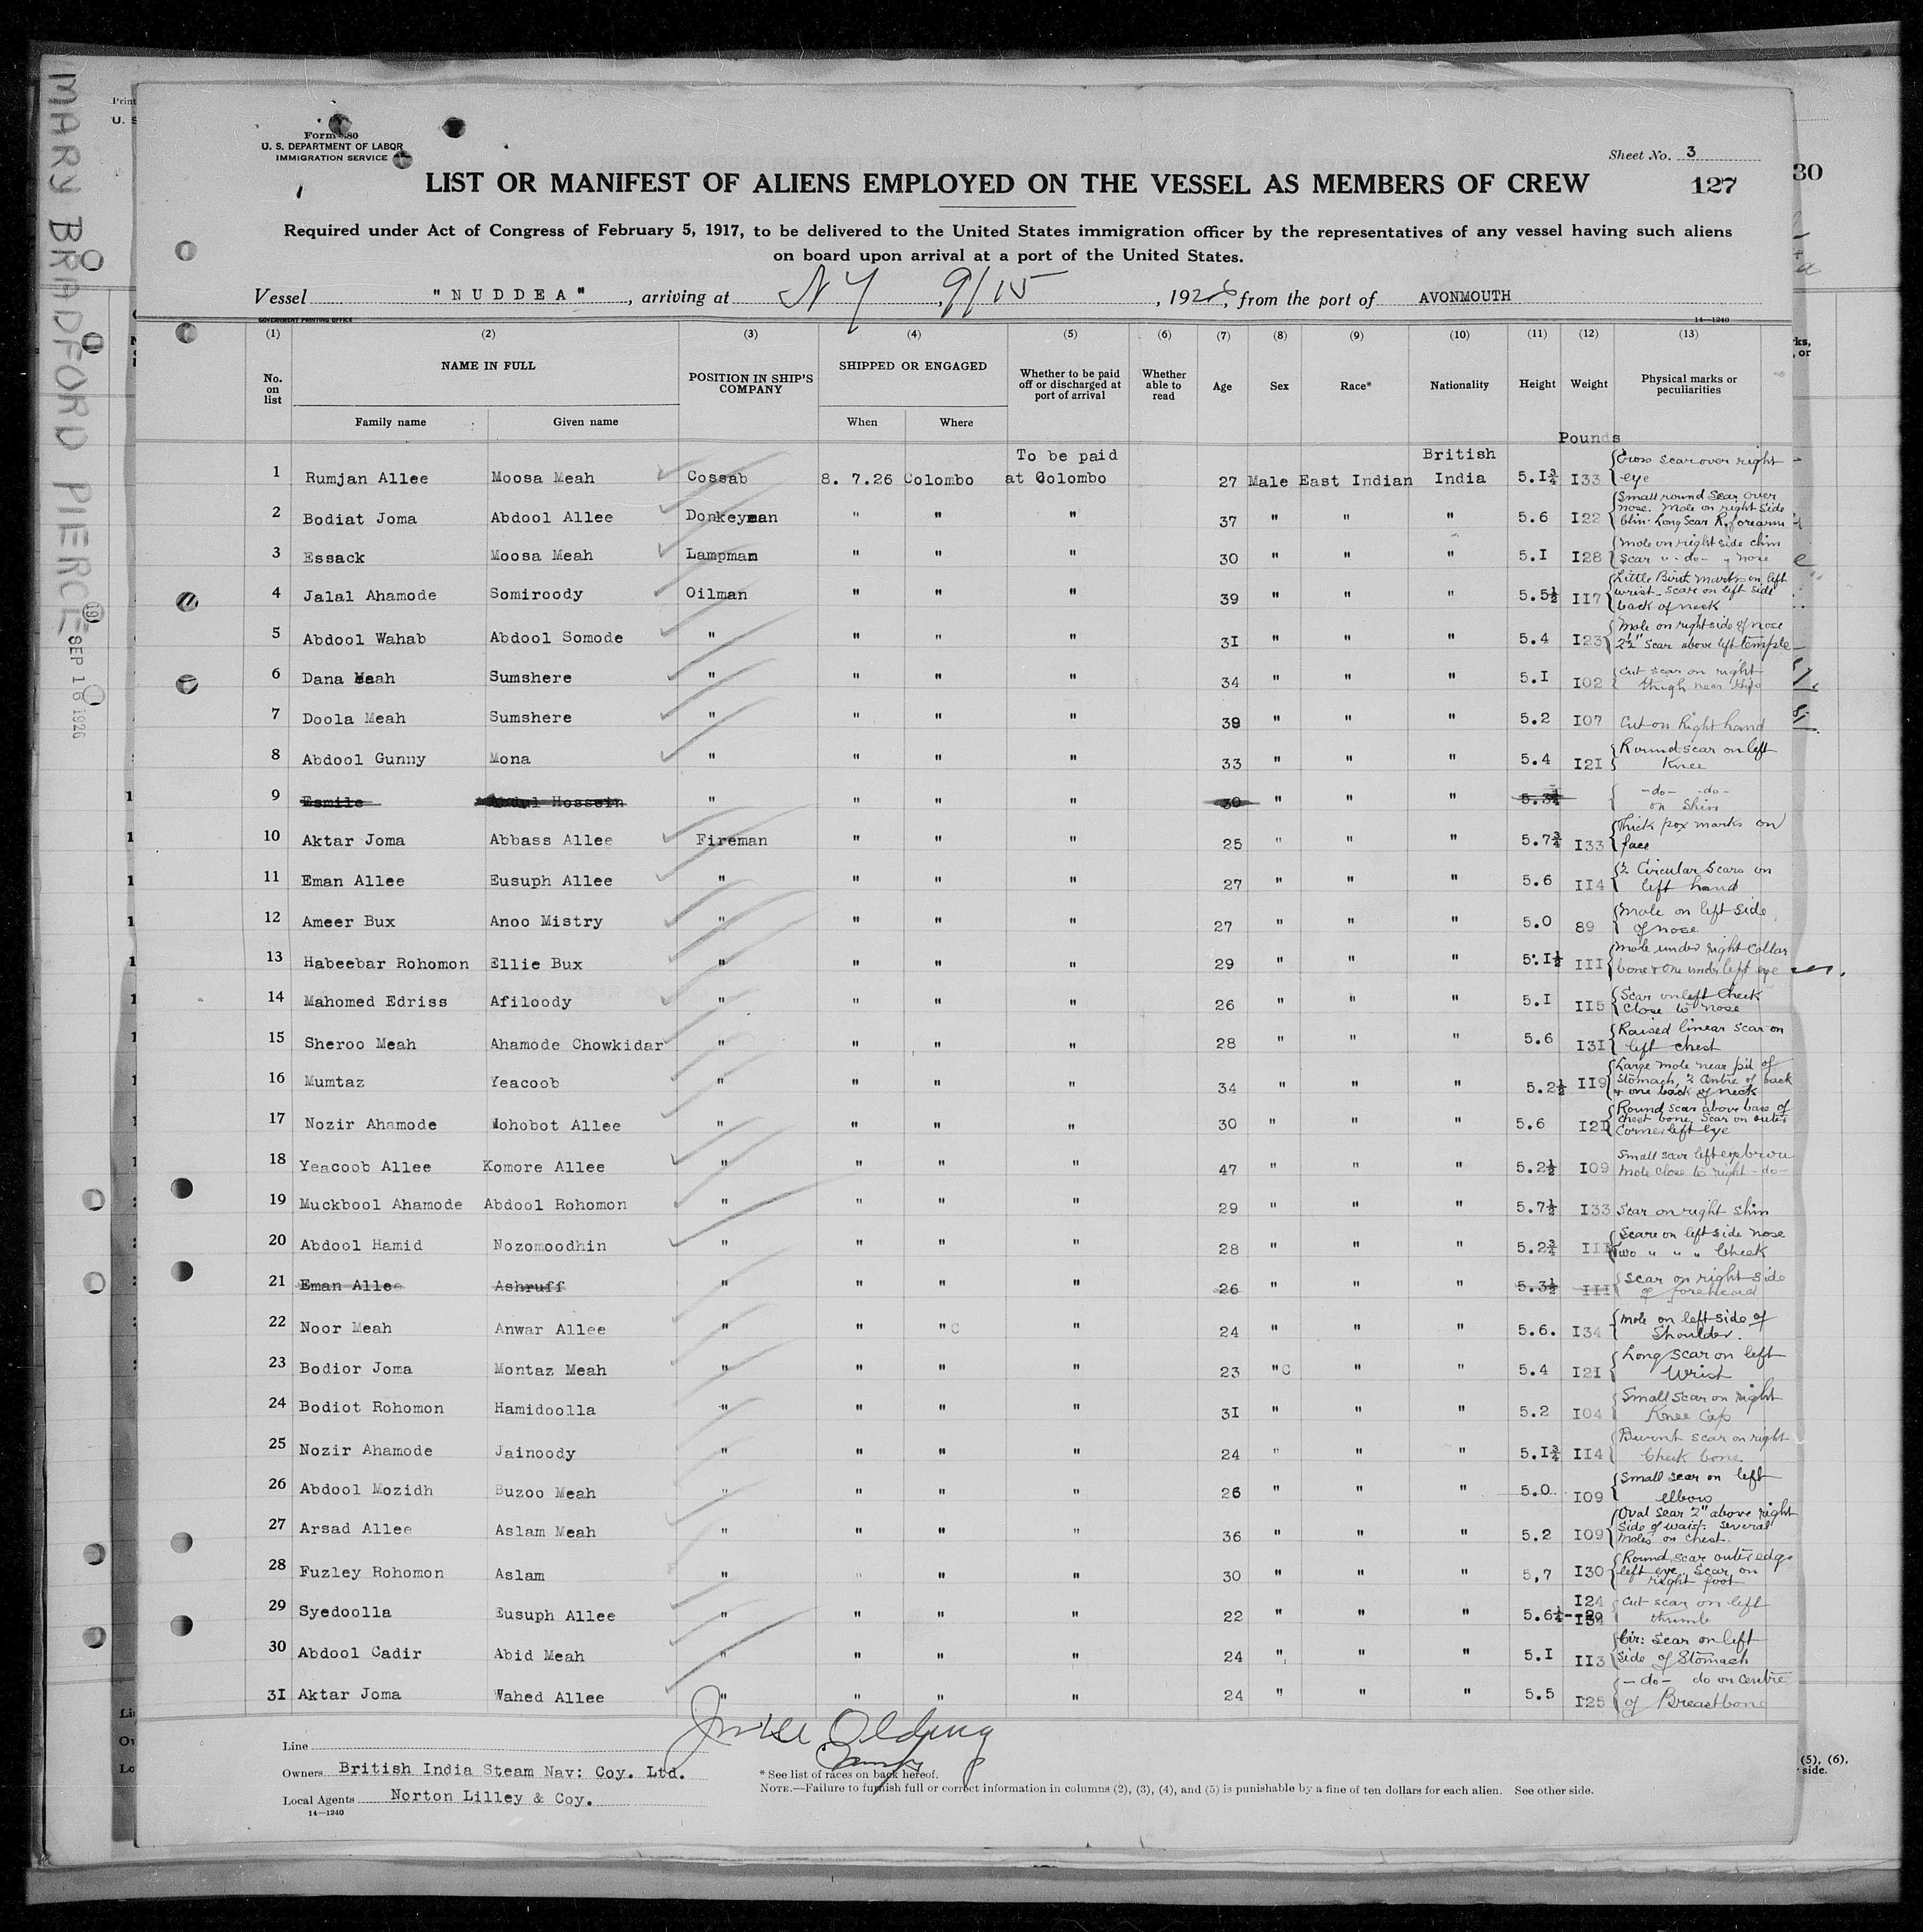 MARY BRADFORD PIERCE
SEP 16 1926
Print
U. S
30
Form 680
U. S. DEPARTMENT OF LABOR
IMMIGRATION SERVICE
Sheet No. 3
LIST OR MANIFEST OF ALIENS EMPLOYED ON THE VESSEL AS MEMBERS OF CREW
127
Required under Act of Congress of February 5, 1917, to be delivered to the United States immigration officer by the representatives of any vessel having such aliens
on board upon arrival at a port of the United States.
Vessel "NUDDEA", arriving at N Y 9/15, 1926, from the port of AVONMOUTH
GOVERNMENT PRINTING OFFICE 14—1240
(1) (2) (3) (4) (5) (6) (7) (8) (9) (10) (11) (12) (13)
No. on list NAME IN FULL Family name Given name POSITION IN SHIP'S COMPANY SHIPPED OR ENGAGED When Where Whether to be paid off or discharged at port of arrival Whether able to read Age Sex Race* Nationality Height Weight Physical marks or peculiarities
Pounds
1 Rumjan Allee Moosa Meah Cossab 8. 7.26 Colombo To be paid at Colombo 27 Male East Indian British India 5.I¾ I33 Cross scar over right eye
2 Bodiat Joma Abdool Allee Donkeyman " " " 37 " " " 5.6 I22 Small round Scar over nose. Mole on right side chin. Long Scar R. forearm
3 Essack Moosa Meah Lampman " " " 30 " " " 5.I I28 Mole on right side chin Scar " -do- " nose
4 Jalal Ahamode Somiroody Oilman " " " 39 " " " 5.5½ II7 Little Birth marks on left wrist. Scar on left side back of neck
5 Abdool Wahab Abdool Somode " " " " 3I " " " 5.4 I23 Mole on right side of nose 2½" Scar above left temple
6 Dana Meah Sumshere " " " " 34 " " " 5.I I02 Cut scar on right thigh near hip
7 Doola Meah Sumshere " " " " 39 " " " 5.2 I07 Cut on Right hand
8 Abdool Gunny Mona " " " " 33 " " " 5.4 I2I Round scar on left Knee
9 Esmile Abdul Hossein " " " " 30 " " " 5.3¼ -do- -do- on Shin
10 Aktar Joma Abbass Allee Fireman " " " 25 " " " 5.7¾ I33 Thick pox marks on face
11 Eman Allee Eusuph Allee " " " " 27 " " " 5.6 II4 2 Circular Scars on left hand
12 Ameer Bux Anoo Mistry " " " " 27 " " " 5.0 89 Mole on left side of nose
13 Habeebar Rohomon Ellie Bux " " " " 29 " " " 5.I½ III Mole under right Collar bone & one under left eye
14 Mahomed Edriss Afiloody " " " " 26 " " " 5.I II5 Scar on left Cheek Close to nose
15 Sheroo Meah Ahamode Chowkidar " " " " 28 " " " 5.6 I3I Raised linear scar on left chest
16 Mumtaz Yeacoob " " " " 34 " " " 5.2½ II9 Large mole near pit of Stomach, 2 Centre of back & one back of neck
17 Nozir Ahamode Mohobot Allee " " " " 30 " " " 5.6 I2I Round scar above base of Chest bone, Scar on outer Corner left eye
18 Yeacoob Allee Komore Allee " " " " 47 " " " 5.2½ I09 Small scar left eyebrow Mole close to right -do-
19 Muckbool Ahamode Abdool Rohomon " " " " 29 " " " 5.7½ I33 Scar on right shin
20 Abdool Hamid Nozomoodhin " " " " 28 " " " 5.2¾ III Scare on left side nose Two " " " Cheek
21 Eman Allee Ashruff " " " " 26 " " " 5.3½ III Scar on right side of forehead
22 Noor Meah Anwar Allee " " " C " 24 " " " 5.6. I34 Mole on left side of Shoulder.
23 Bodior Joma Montaz Meah " " " " 23 "C " " 5.4 I2I Long Scar on left Wrist
24 Bodiot Rohomon Hamidoolla " " " " 3I " " " 5.2 I04 Small scar on right Knee Cap
25 Nozir Ahamode Jainoody " " " " 24 " " " 5.I¾ II4 Burnt scar on right Cheek bone
26 Abdool Mozidh Buzoo Meah " " " " 26 " " " 5.0 I09 Small scar on left elbow
27 Arsad Allee Aslam Meah " " " " 36 " " " 5.2 I09 Oval Scar 2" above right Side of waist. Several Moles on Chest.
28 Fuzley Rohomon Aslam " " " " 30 " " " 5,7 I30 Round scar outer edge left eye. Scar on right foot
29 Syedoolla Eusuph Allee " " " " 22 " " " 5.6¼ I24 Cut scar on left thumb
30 Abdool Cadir Abid Meah " " " " 24 " " " 5.I II3 Cir: Scar on left side of Stomach
3I Aktar Joma Wahed Allee " " " " 24 " " " 5.5 I25 -do- do on Centre of Breastbone
Line
Owners British India Steam Nav: Coy. Ltd.
Local Agents Norton Lilley & Coy.
14—1240
* See list of races on back hereof.
NOTE.—Failure to furnish full or correct information in columns (2), (3), (4), and (5) is punishable by a fine of ten dollars for each alien. See other side.
(5), (6),
side.